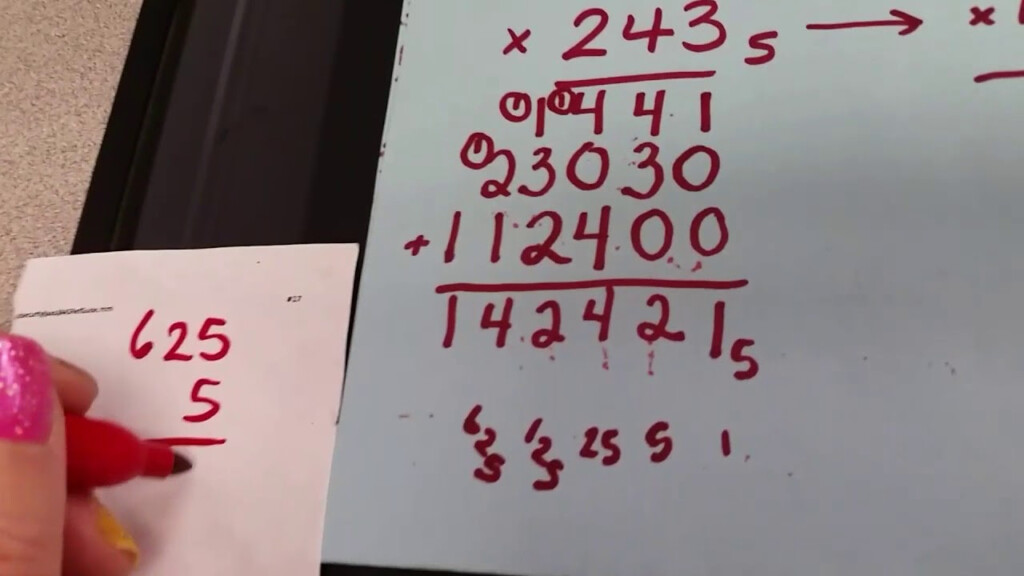 × 243₅ → ×
1441
23030
+112400
142421₅
625 125 25 5 1
#27
625
5